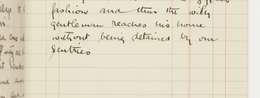 fashion and thus the wily
gentleman reaches his home
without being detained by our
Sentries